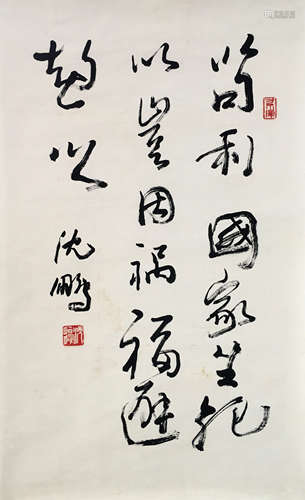 苟利國家生死
以豈因祸福避
趋之
沈鹏